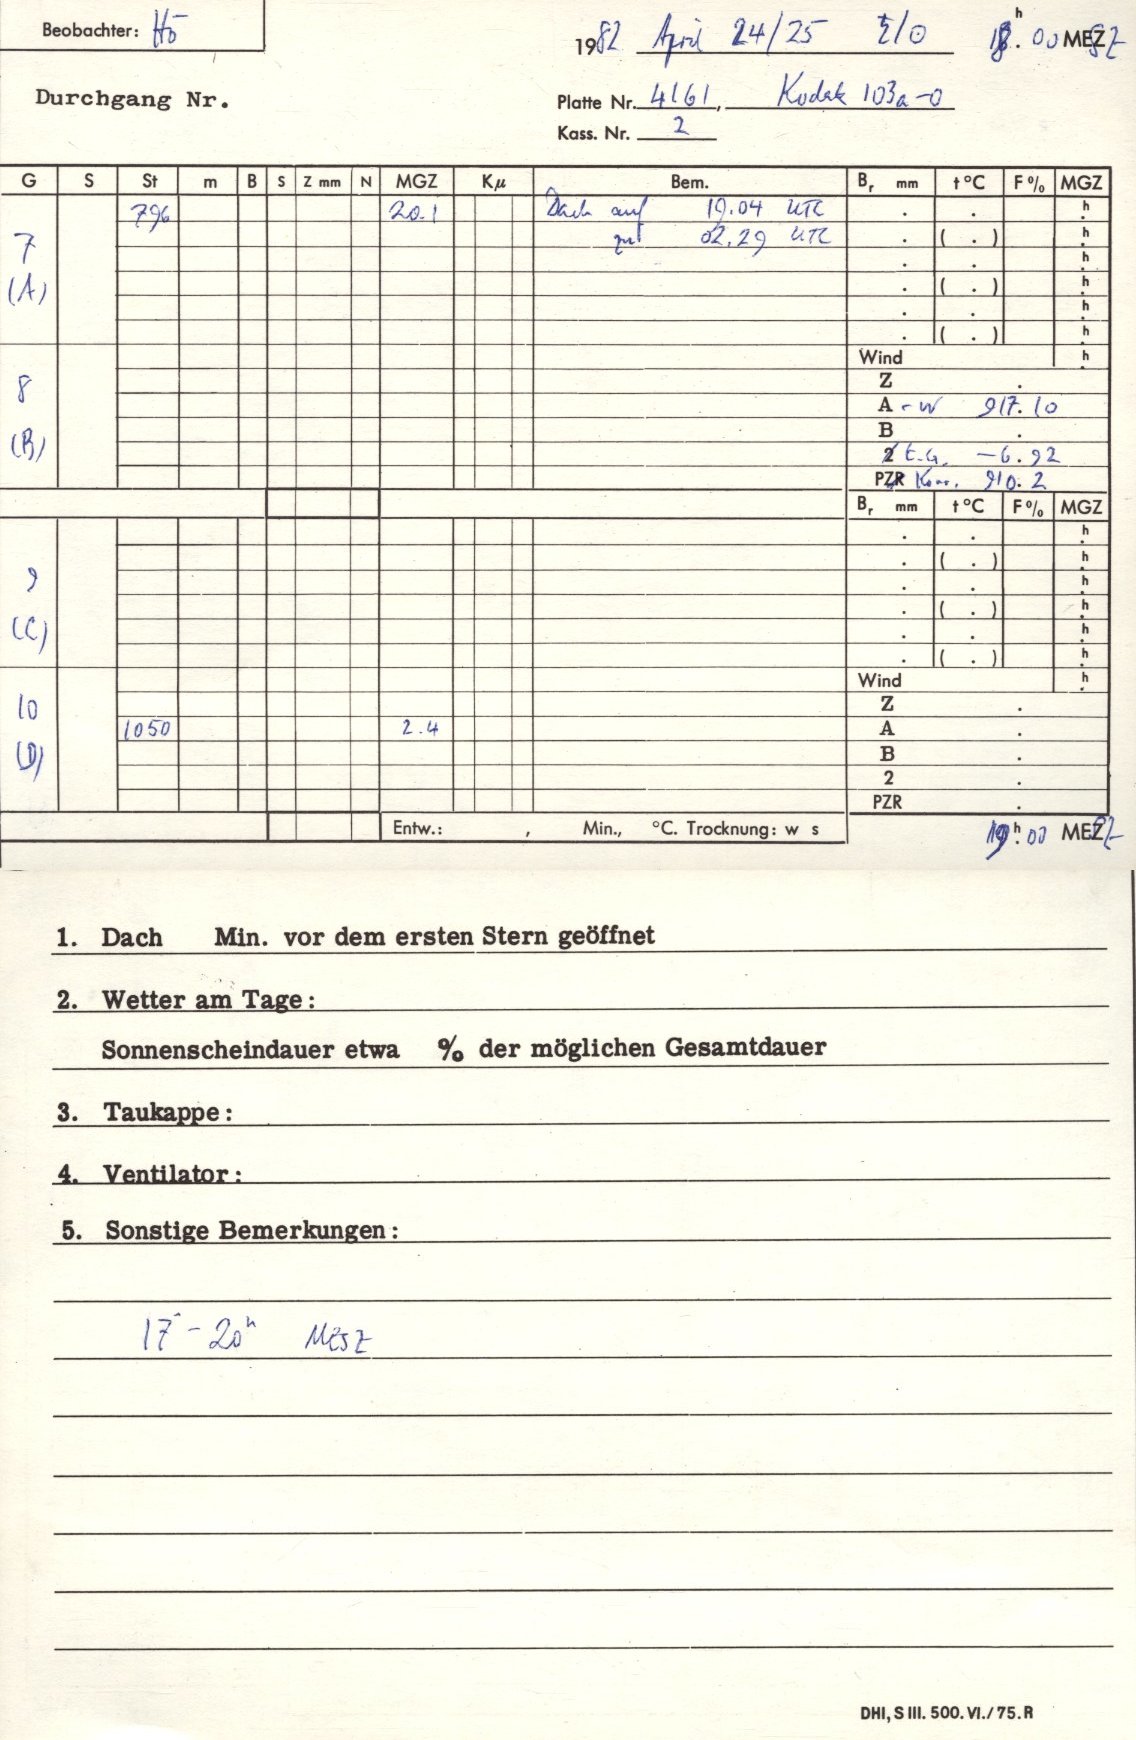 Beobachter: Hö
1982 April 24/25 18.h 00 MESZ
Durchgang Nr.
Platte Nr. 4161, Kodak 103a-O
Kass. Nr. 2
G S St m B S Z mm N MGZ Kµ Bem. Br mm t °C F% MGZ
7 796 20.1 Dach auf 19.04 UTC . . .h
zu 02.29 UTC . ( . ) .h
. . .h
(A) . ( . ) .h
. . .h
. ( . ) .h
Wind .h
8 Z .
A - W 917.10
(B) B .
E.G. -6.92
Korr. 910.2
Br mm t °C F% MGZ
. . .h
. ( . ) .h
9 . . .h
. ( . ) .h
(C) . . .h
. ( . ) .h
Wind .h
10 Z .
1050 2.4 A .
(D) B .
2 .
PZR .
Entw.: , Min., °C. Trocknung: w s
19.h 00 MESZ
1. Dach Min. vor dem ersten Stern geöffnet
2. Wetter am Tage:
Sonnenscheindauer etwa % der möglichen Gesamtdauer
3. Taukappe:
4. Ventilator:
5. Sonstige Bemerkungen:
17 - 20h MESZ
DHI, S III. 500. VI./75. R